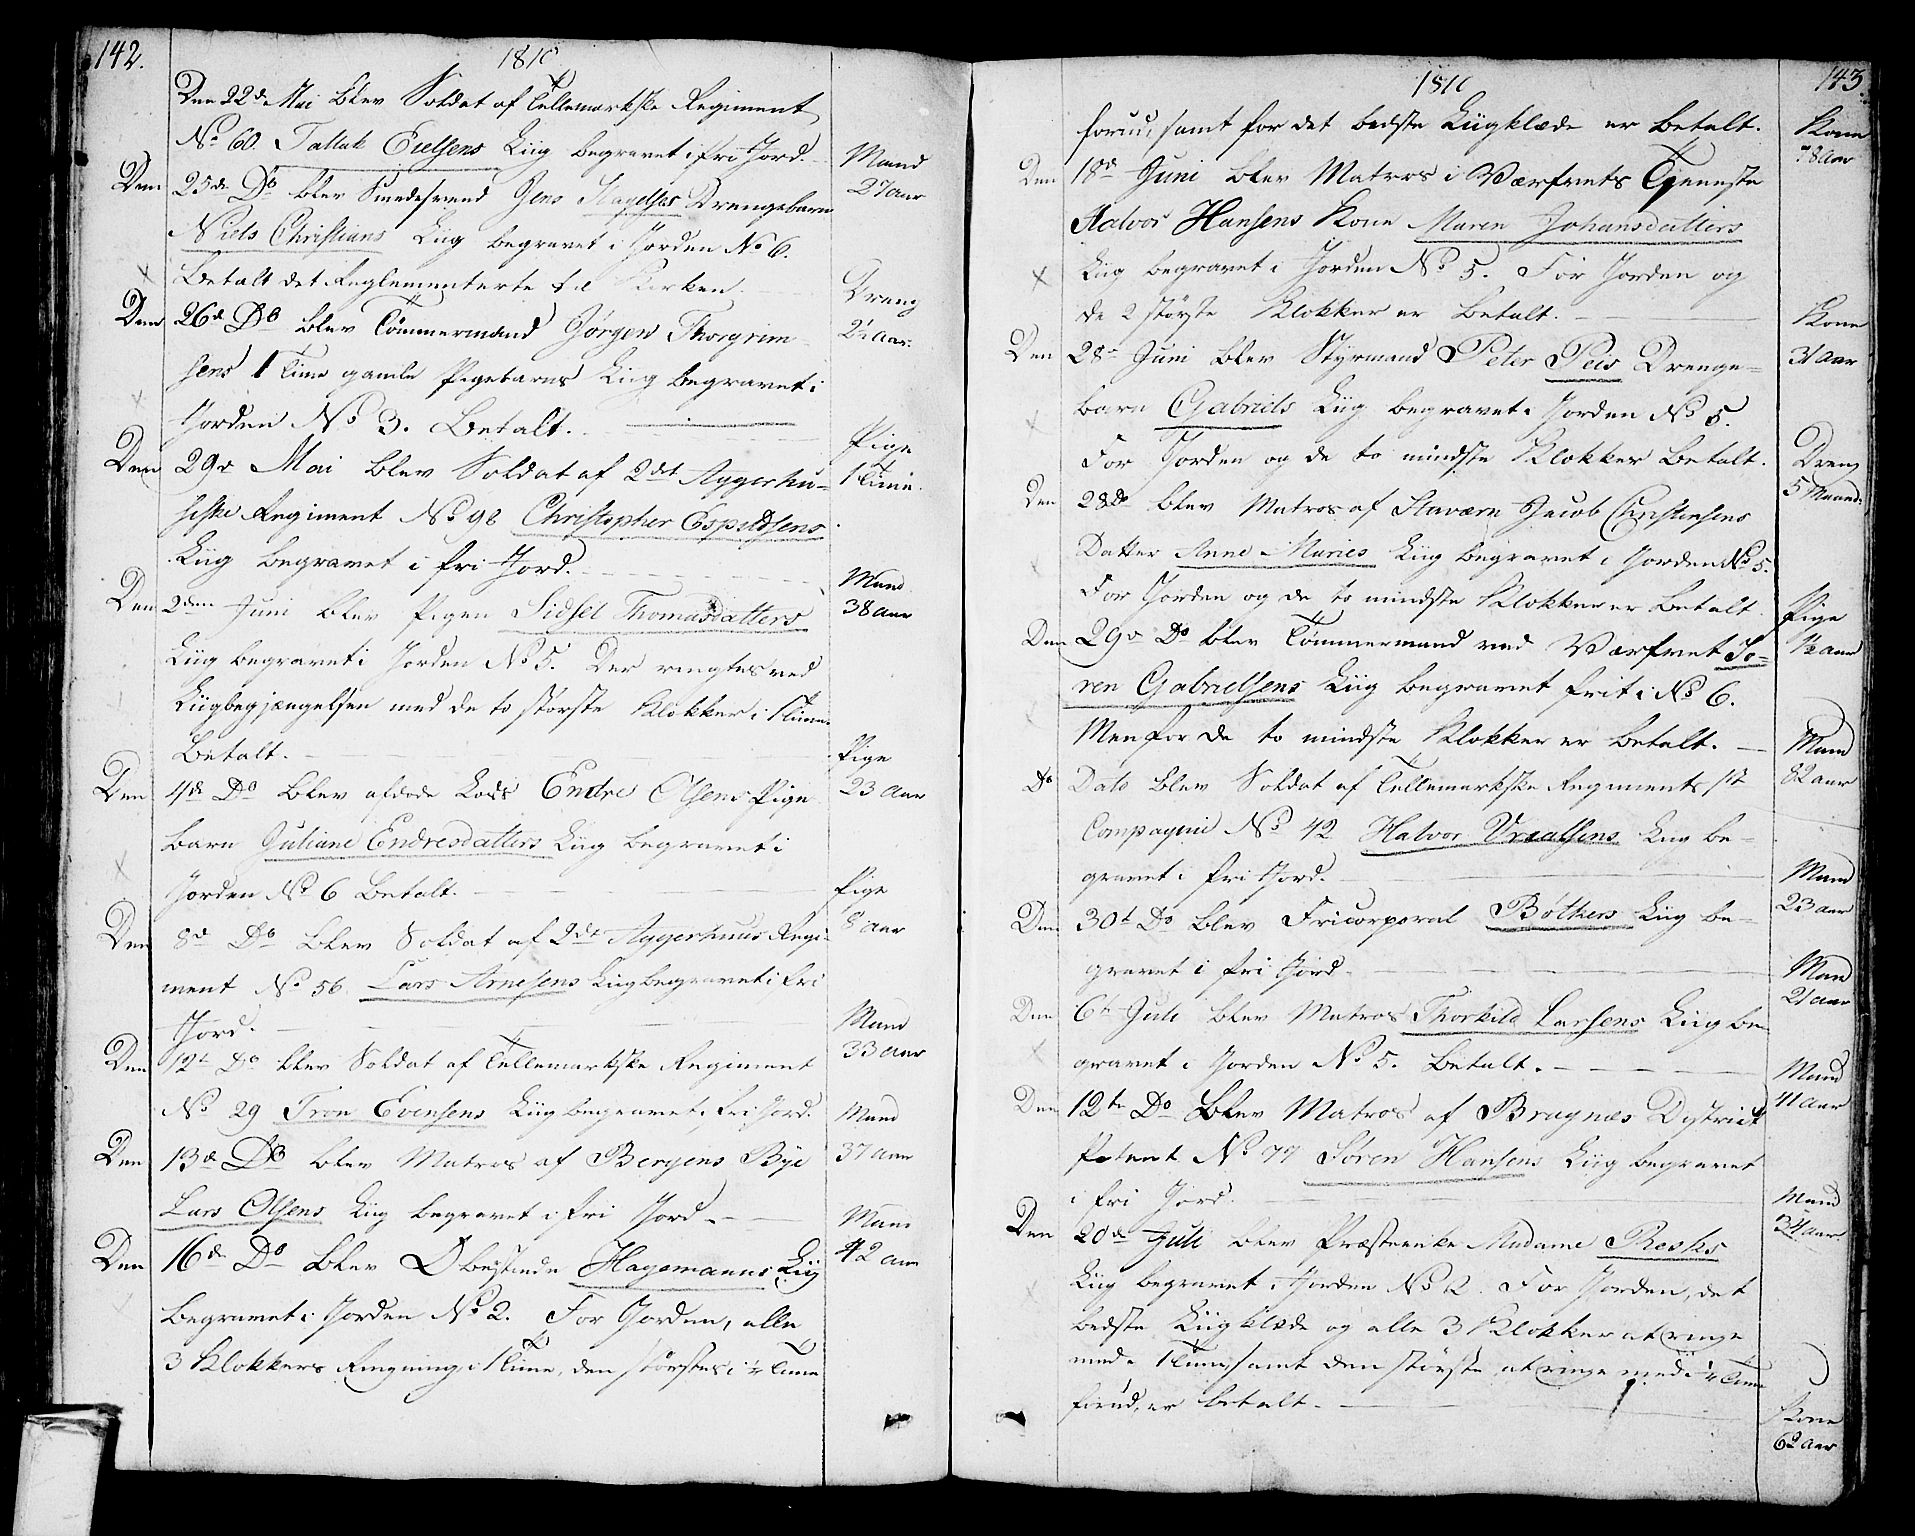 142.
1810
Den 22de Mai blev Soldat af Tellemarkske Regiment
No 60. Tallak Eielsens Liig begravet i fri Jord. Mand
27 Aar
Den 25de Do blev Smedesvend Jens Drengebarn
Niels Christians Liig begravet i Jorden No 6.
Betalt det Reglementerte til Kirken. Dreng
2½ Aar.
Den 26d Do blev Tömmermand Jörgen Thorgrim-
sens 1 Time gamle Pigebarns Liig begravet i
Jorden No 3. Betalt. Pige
1 Time.
Den 29d Mai blev Soldat af 2det Aggerhu-
siske Regiment No 98 Christopher Espeldsens
Liig begravet i fri Jord. Mand
38 Aar
Den 2den Juni blev Pigen Sidsel Thomasdatters
Liig begravet i Jorden No 5. Der ringtes ved
Liigbegjængelsen med de to störste Klokker i 1 Time.
Betalt. Pige
23 Aar
Den 4de Do blev afdöde Lods Endre Olsens Pige
barn Juliane Endresdatters Liig begravet i
Jorden No 6 Betalt. Pige
8 Aar
Den 8d Do blev Soldat af 2det Aggerhuus Regi-
ment No 56. Lars Arnesens Liig begravet i fri
Jord. Mand
33 Aar
Den 12t Do blev Soldat af Tellemarkske Regiment
No 29 Tron Evensens Liig begravet i fri Jord. Mand
37 Aar
Den 13de Do blev Matros af Bergens Bye
Lars Olsens Liig begravet i fri Jord. Mand
42 Aar
Den 16de Do blev Obertinde Hagemanns Liig
begravet i Jorden No 2. For Jorden, alle
3 Klokkers Ringning i 1 Time, den störstes i ½ Time
143.
1810
forud, samt for det bedste Liigklæde er betalt. Kone
78 Aar
Den 18d Juni blev Matros i Værfvets Tjeneste
Halvor Hansens Kone Maren Johansdatters
Liig begravet i Jorden No 5. For Jorden og
de 2 störste Klokker er betalt. Kone
31 Aar
Den 28 Juni blev Styrmand Peter Drenge-
barn Gabriels Liig begravet i Jorden No 5.
For Jorden og de to mindste Klokker betalt. Dreng
5 Maand.
Den 28de blev Matros af Staværn Jacob Christensens
Datter Anne Maries Liig begravet i Jorden No 5.
For Jorden og de to mindste Klokker er betalt. Pige
½ Aar
Den 29d Do blev Tömmermand ved Værfvet Sö-
ren Gabrielsens Liig begravet frit i No 6.
Men for de to mindste Klokker er betalt. Mand
82 Aar
Do Dato blev Soldat af Tellemarkske Regiments 1st
Compagnie No 42 Halvor Liig be-
gravet i fri Jord. Mand
23 Aar
Den 30t Do blev Fricorporal Böthers Liig be-
gravet i fri Jord. Mand
21 Aar
Den 6t Juli blev Matros Thorkild Larsens Liig be-
gravet i Jorden No 5. Betalt. Mand
41 Aar
Den 12te Do blev Matros af Bragnæs District
Patent No 77 Sören Hansens Liig begravet
i fri Jord. Mand
34 Aar.
Den 20de Juli blev Præsteenke Madame
Liig begravet i Jorden No 2. For Jorden, det
bedste Liigklæde og alle 3 Klokker at ringe
med i 1 Time, samt den störste at ringe med i ½ Time
forud, er betalt. Kone
62 Aar